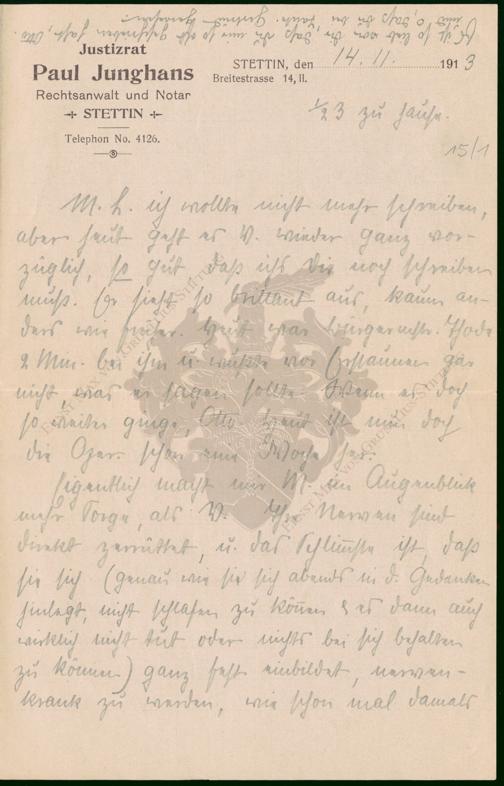 Justizrat
Paul Junghans
Rechtsanwalt und Notar
STETTIN
Telephon No. 4126.
STETTIN, den 14. 11. 1913
Breitestrasse 14, II.
1/2 3 zu Hause.
15/1
M. L. ich wollte nicht mehr schreiben,
aber heut geht es V. wieder ganz vor-
züglich, so gut, daß ichs Dir noch schreiben
muß. Er sieht so brillant aus, kaum an-
ders wie früher. Heut war Bürgermstr. Thode
2 Min. bei ihm u. wußte vor Erstaunen gar
nicht, was er sagen sollte. Wenn es doch
so weiter ginge, Otto, heut ist nun doch
die Oper. schon eine Woche her.
Eigentlich macht mir M. im Augenblick
mehr Sorge, als V. Ihre Nerven sind
direkt zerrüttet, u. das Schlimmste ist, daß
sie sich (genau wie sie sich abends in d. Gedanken
hinlegt, nicht schlafen zu können & es dann auch
wirklich nicht tut oder nichts bei sich behalten
zu können) ganz fest einbildet, nerven-
krank zu werden, wie schon mal damals